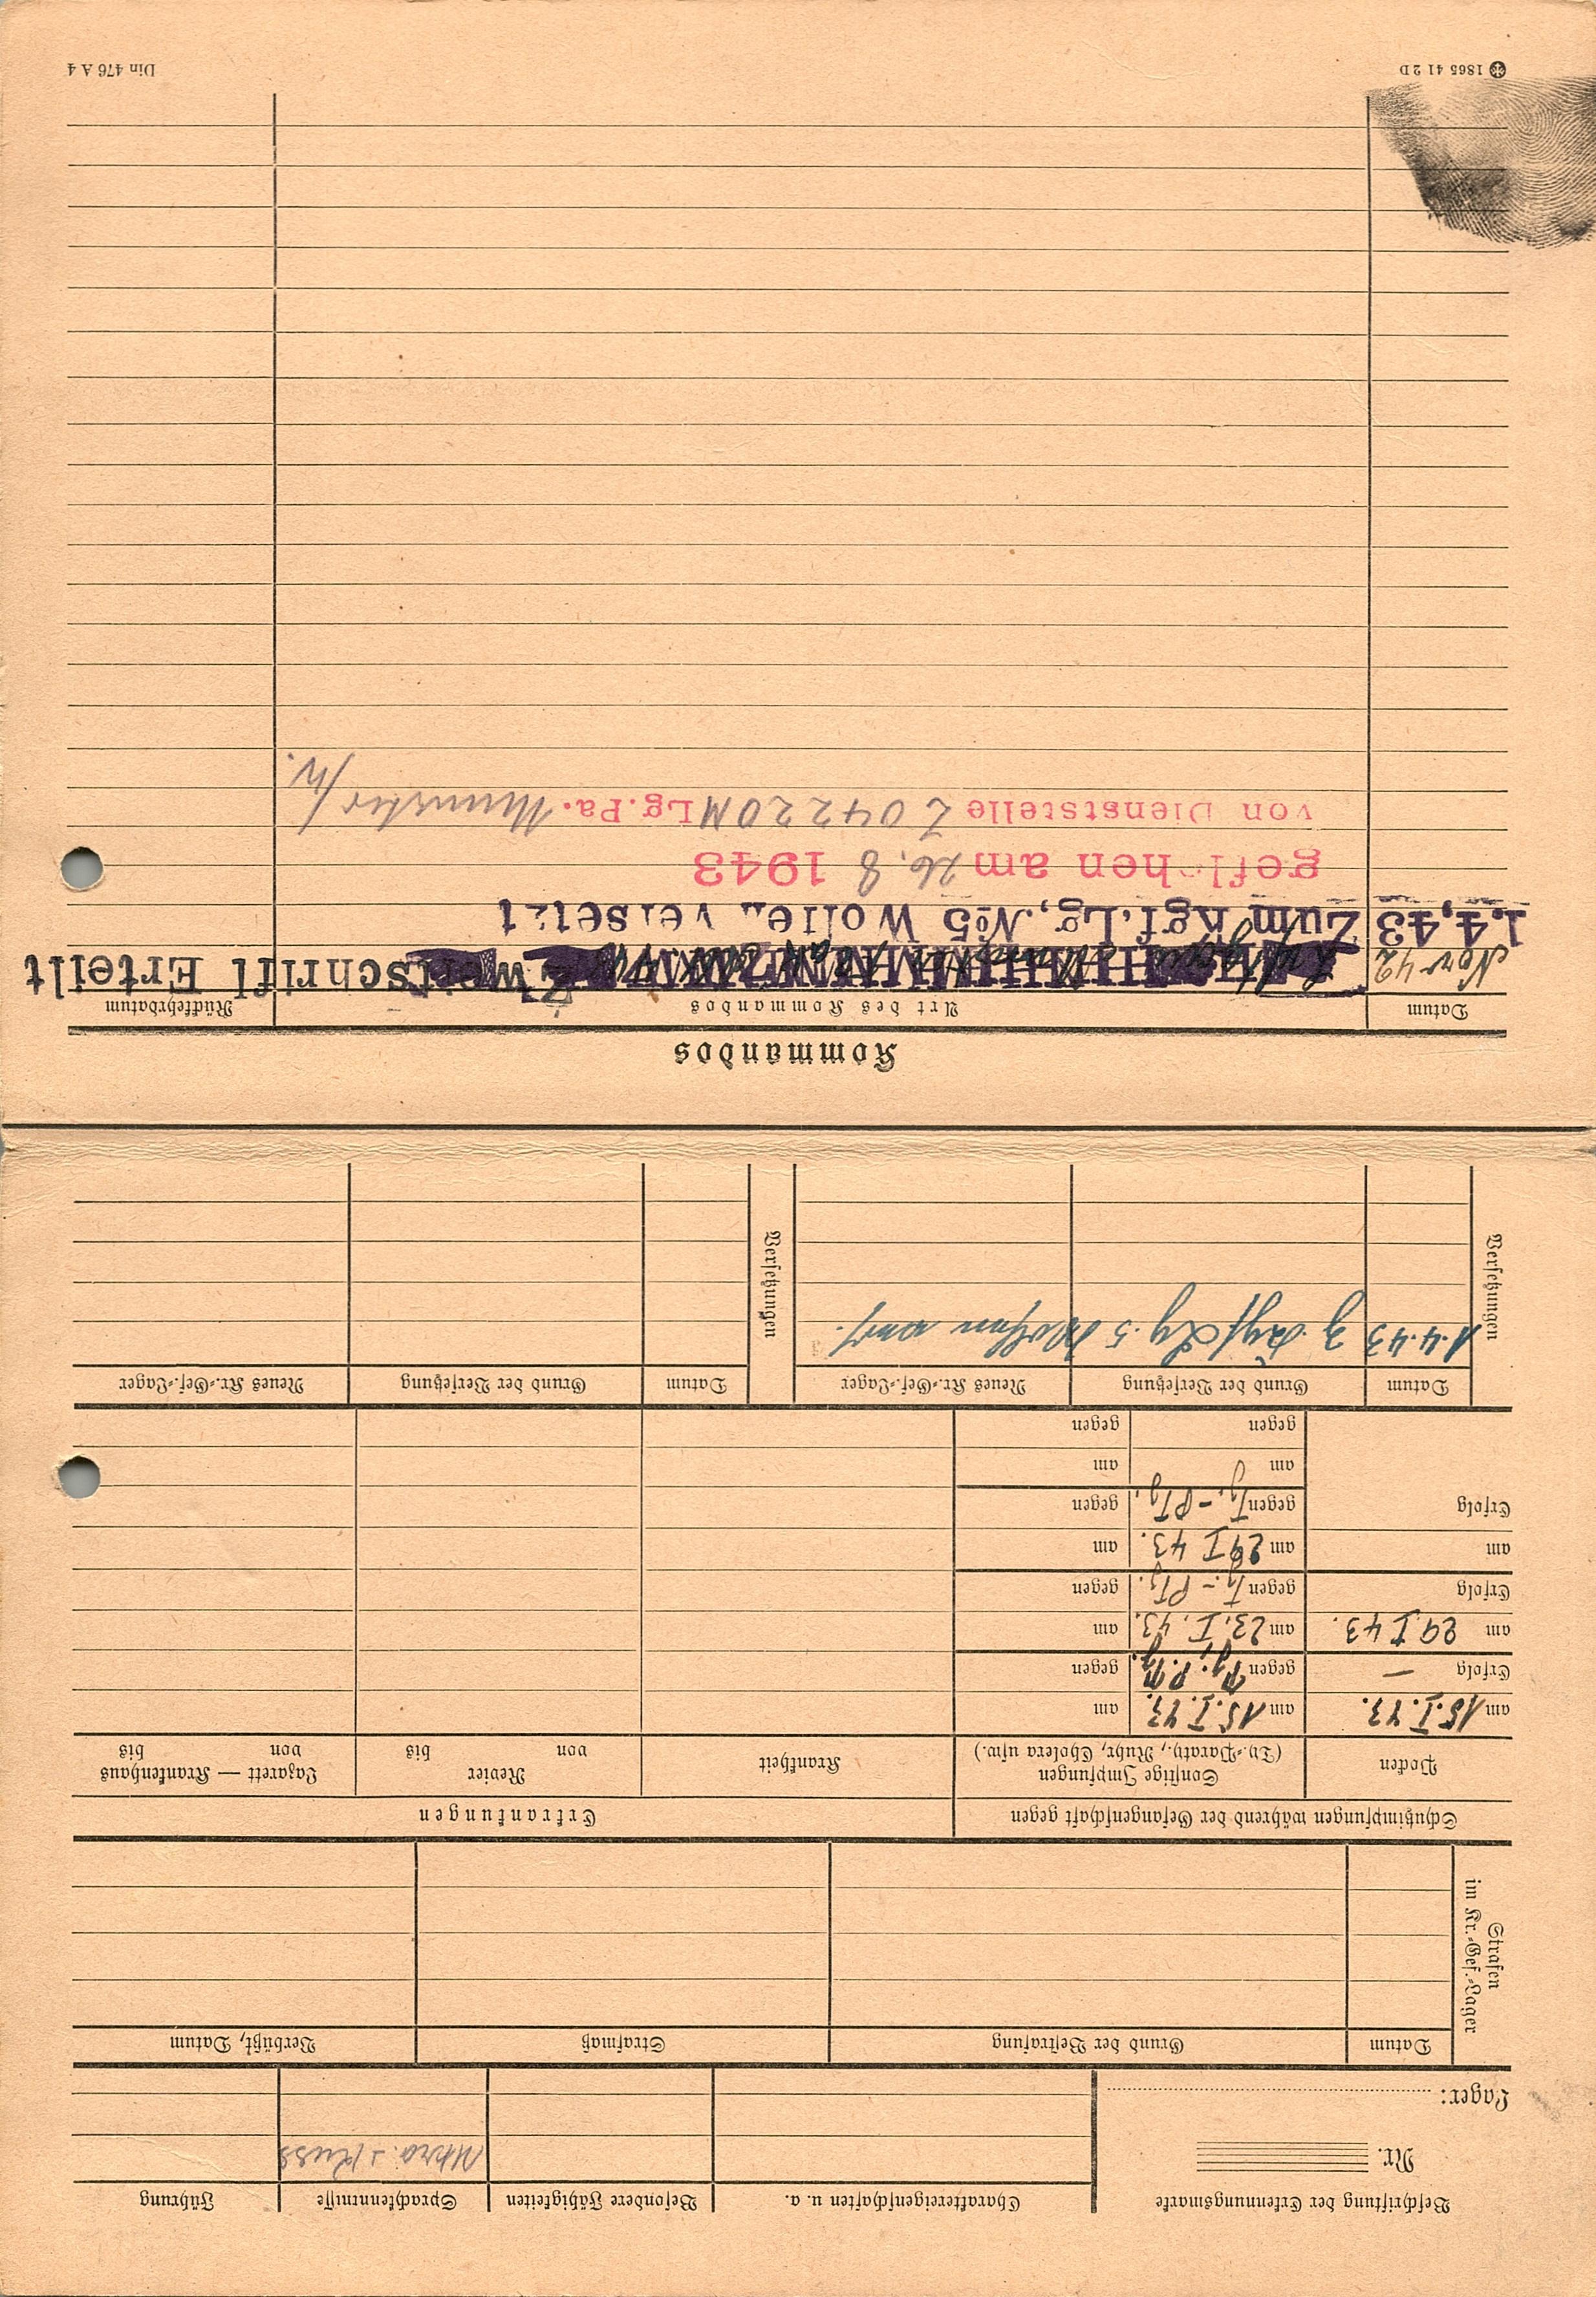 Beschriftung der Erkennungsmarke
Charaktereigenschaften u. a.
Besondere Fähigkeiten
Sprachkenntnisse
Führung
Nr.
Ukra. + Russ
Lager:
Strafen
im Kr.-Gef.-Lager
Datum
Grund der Bestrafung
Strafmaß
Verbüßt, Datum
Schutzimpfungen während der Gefangenschaft gegen
Erkrankungen
Pocken
Sonstige Impfungen
(Ty.-Paraty., Ruhr, Cholera usw.)
Krankheit
Revier
von bis
Lazarett — Krankenhaus
von bis
am 15.I.43.
am 15.I.43.
am
Erfolg —
gegen
gegen
am 29 I 43.
am 23.I.43.
am
Erfolg
gegen Ty.-PTy.
gegen
am
am 29 I 43.
am
Erfolg
gegen Ty.-PTy.
gegen
am
am
gegen
gegen
Versetzungen
Datum
Grund der Versetzung
Neues Kr.-Gef.-Lager
Versetzungen
Datum
Grund der Versetzung
Neues Kr.-Gef.-Lager
1.4.43 z. Kgf Lg. 5 Wolfen vers.
Kommandos
Datum
Art des Kommandos
Rückkehrdatum
Nov 42
Zweitschrift Erteilt
1.4.43 Zum Kgf.Lg. №5 Wolfen versetzt
geflohen am 26. 8 1943
von Dienststelle Z 04220M Lg.Pa. Munster/W.
1865 41 2 D
Din 476 A 4